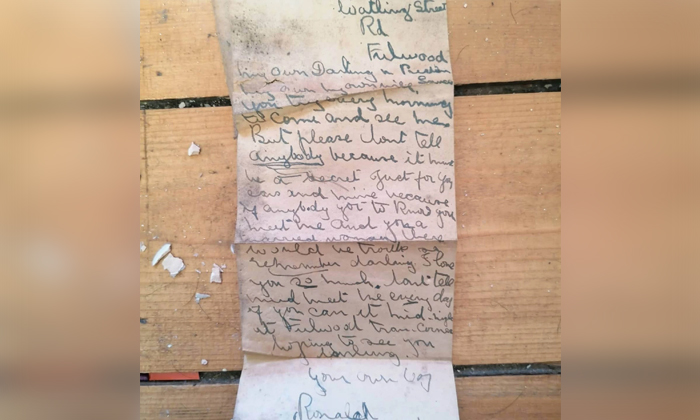 Watling Street
Rd
Fulwood
My Own Darling
you try every morning
to come and see me
But please dont tell
anybody because it must
be a secret Just for yo
and mine because
if anybody got to know you
meet me and you a
married woman there
would be trouble so
remember darling I love
you so much. dont tell
mind meet me every day
if you can at mid-
at Fulwood tram Corner
hoping to see you
darling
your own
Ronald